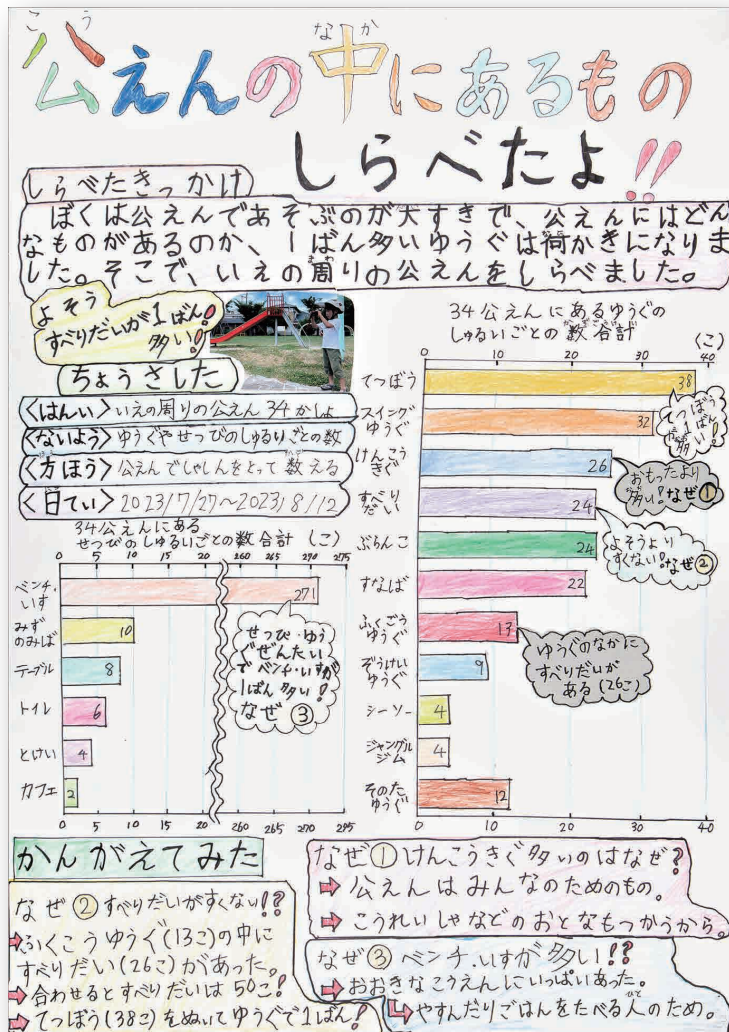 こう なか
公えんの中にあるもの
しらべたよ!!
しらべたきっかけ
ぼくは公えんであそぶのが大すきで、公えんにはどん
なものがあるのか、1ばん多いゆうぐは何かきになりま
した。そこで、いえの周りの公えんをしらべました。
よそう
すべりだいが1ばん
多い!!
ちょうさした
〈はんい〉いえの周りの公えん34かしょ
〈ないよう〉ゆうぐやせつびのしゅるいごとの数
〈方ほう〉公えんでしゃしんをとって数える
〈日てい〉2023/7/27〜2023/8/12
34公えんにある
せつびのしゅるいごとの数合計 (こ)
0 5 10 20 260 265 270 275
ベンチ・いす 271
みずのみば 10
テーブル 8
トイレ 6
とけい 4
カフェ 2
0 5 10 20 260 265 270 295
せつび・ゆう
ぐぜんたい
でベンチ・いすが
1ばん多い!
なぜ③
34公えんにあるゆうぐの
しゅるいごとの数合計 (こ)
0 10 20 30 40
てつぼう 38
スイングゆうぐ 32
けんこうきぐ 26
すべりだい 24
ぶらんこ 24
すなば 22
ふくごうゆうぐ 13
ぞうけいゆうぐ 9
シーソー 4
ジャングルジム 4
そのたゆうぐ 12
0 10 20 30 40
てつぼう
1ばん
多い!
おもったより
多い!なぜ①
よそうより
すくない!なぜ②
ゆうぐのなかに
すべりだいが
ある(26こ)
かんがえてみた
なぜ①けんこうきぐ多いのはなぜ?
➡公えんはみんなのためのもの。
➡こうれいしゃなどのおとなもつかうから。
なぜ②すべりだいがすくない!?
➡ふくごうゆうぐ(13こ)の中に
すべりだい(26こ)があった。
➡合わせるとすべりだいは50こ!
➡てつぼう(38こ)をぬいてゆうぐで1ばん!
なぜ③ベンチ・いすが多い!?
➡おおきなこうえんにいっぱいあった。
➡やすんだりごはんをたべる人のため。